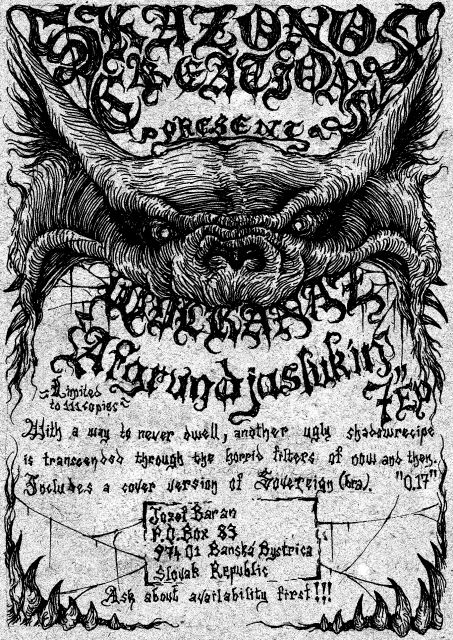 SKAZONOS
CREATIONS
PRESENT
WULKANAZ
Afgrundjaslukin
7" EP
~Limited
to 111 copies~
With a way to never dwell, another ugly shadowrecipe
is transcended through the horrid filters of now and then.
Includes a cover version of Sovereign (bra). "0.17"
Jozef Baran
P.O.Box 83
974 01 Banská Bystrica
Slovak Republic
Ask about availability first!!!